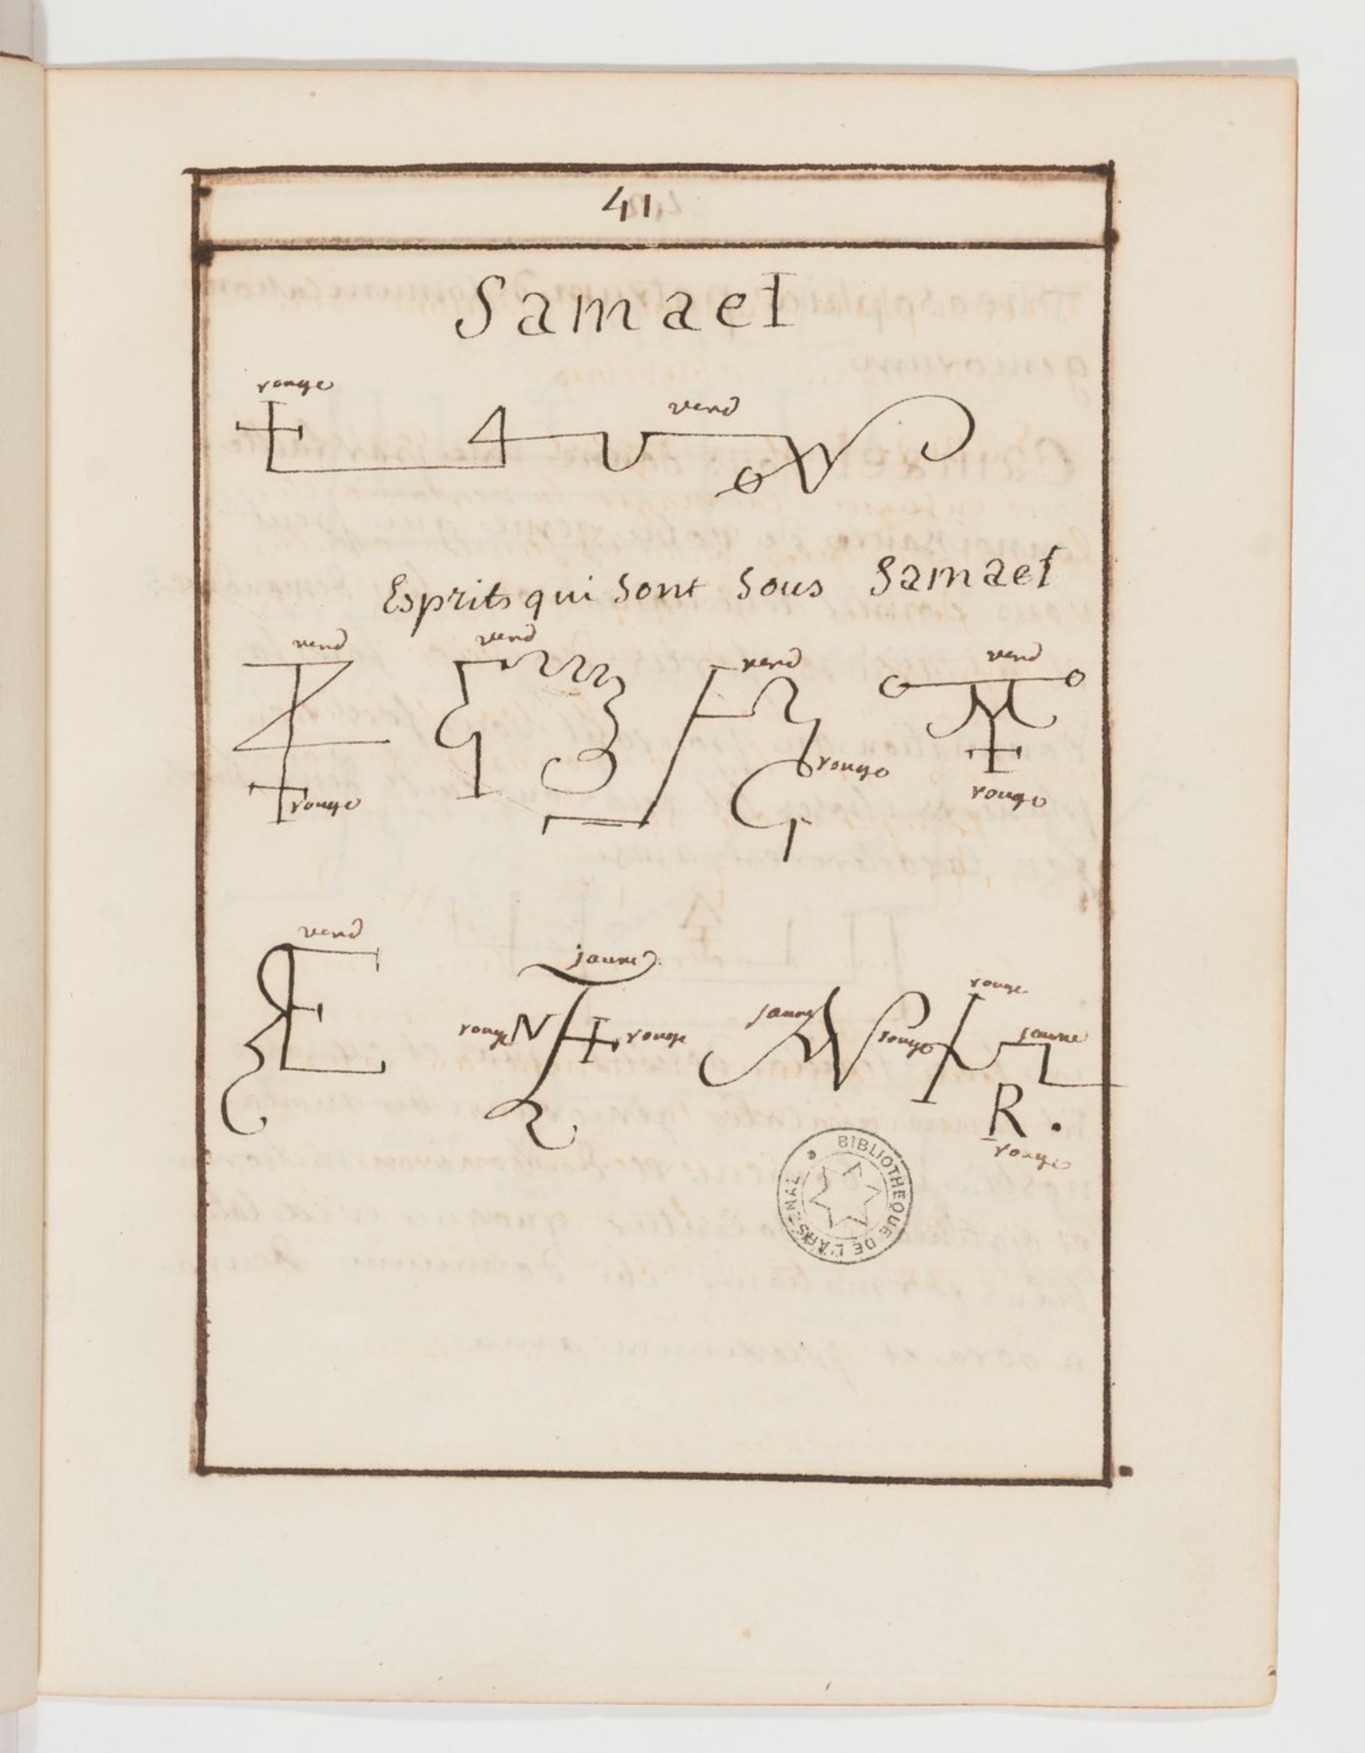 41
Samael
rouge
verd
Esprits qui sont sous Samael
verd verd verd verd
rouge rouge rouge
verd jaune
rouge N rouge jaune rouge rouge jaune
R.
rouge
BIBLIOTHEQUE DE L'ARSENAL